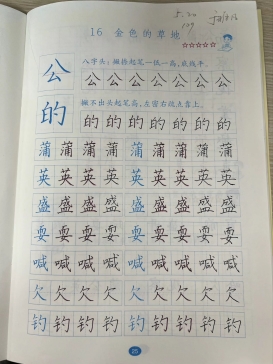 5.20
16 金色的草地
公
八字头：撇捺起笔一低一高，底线平。
公公公公公公公
的
撇不出头起笔高，左窄右的点靠上。
的的的的的的的
蒲蒲蒲蒲蒲蒲蒲蒲蒲
英英英英英英英英英
盛盛盛盛盛盛盛盛盛
耍耍耍耍耍耍耍耍耍
喊喊喊喊喊喊喊喊喊
欠欠欠欠欠欠欠欠欠
钓钓钓钓钓钓钓钓钓
25